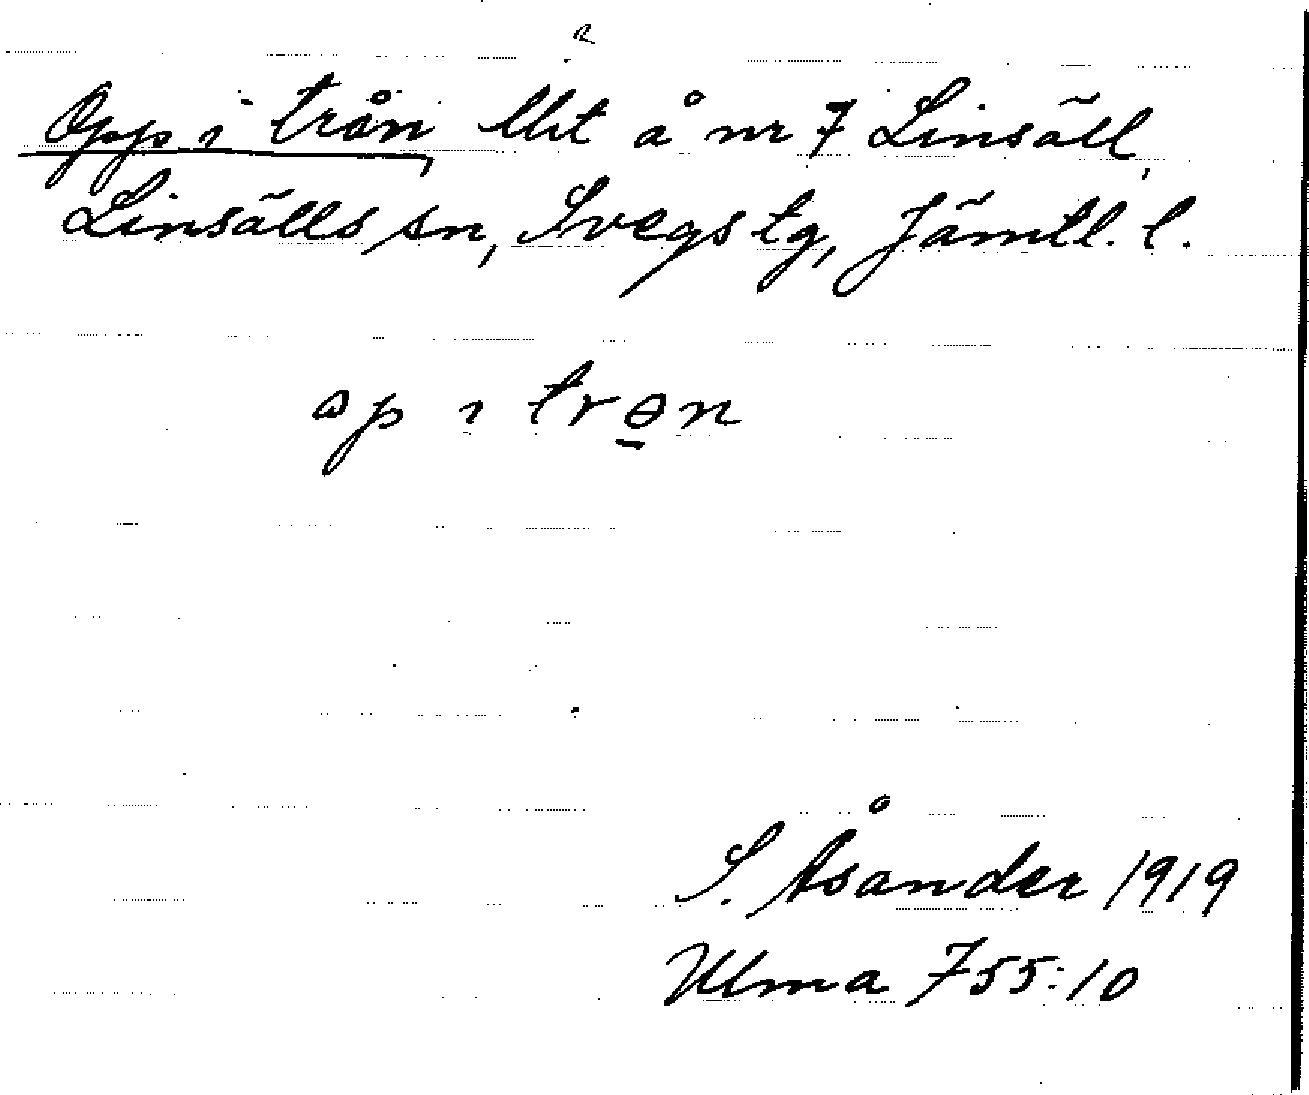 Opp i trån, llit å nr 7 Linsäll,
Linsälls sn, Svegs tg, Jämtl. l.
op i tron
S. Åsander 1919
Ulma 755:10